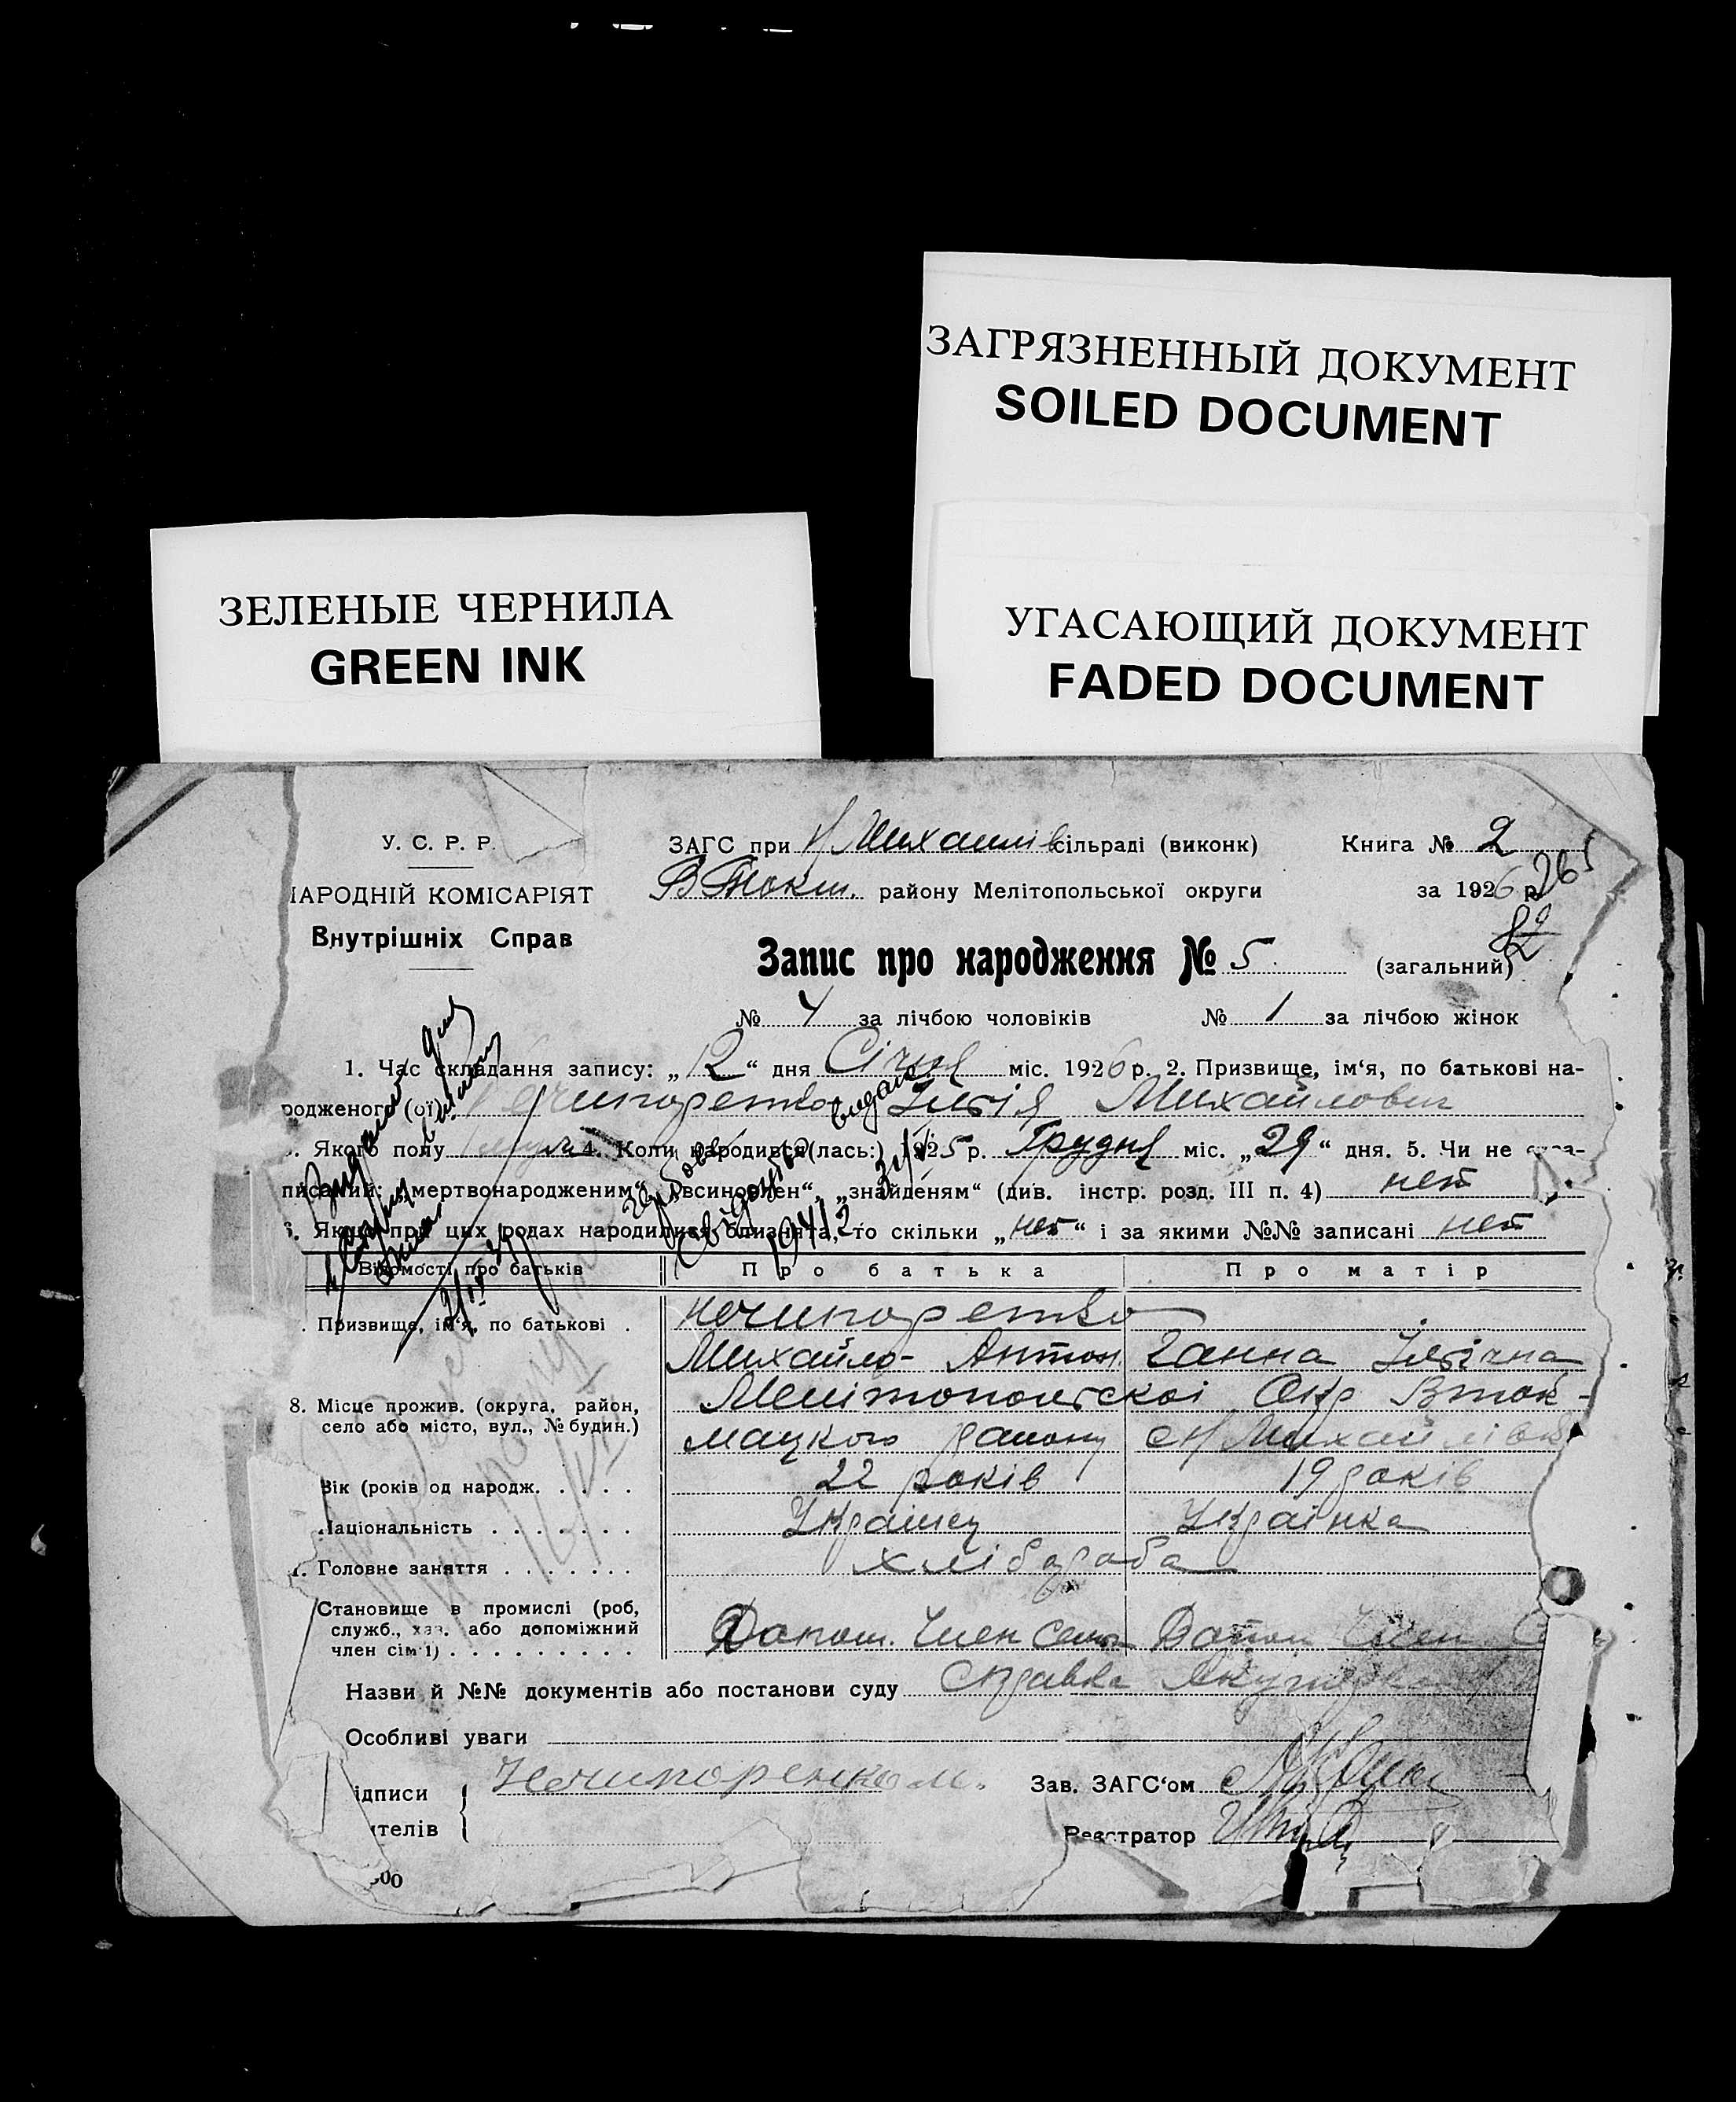 ЗАГРЯЗНЕННЫЙ ДОКУМЕНТ
SOILED DOCUMENT
ЗЕЛЕНЫЕ ЧЕРНИЛА
GREEN INK
УГАСАЮЩИЙ ДОКУМЕНТ
FADED DOCUMENT
У. С. Р. Р.
НАРОДНІЙ КОМІСАРІЯТ
Внутрішніх Справ
ЗАГС при Н Михайлів сільраді (виконк) Книга № 2
В Токм. району Мелітопольської округи за 1926 р. 265
Запис про народження № 5 (загальний)
№ 4 за лічбою чоловіків № 1 за лічбою жінок
1. Час складання запису: „12“ дня Січня міс. 1926 р. 2. Призвище, ім‘я, по батькові на-
родженого (ої) Нечипоренко Ілія Михайлович
Якого полу муж 4. Коли народився (лась:) 1925 р. Грудня міс. „29“ дня. 5. Чи не
писаний: „мертвонародженим“ „всиновлен“, „знайденям“ (див. інстр. розд. III п. 4) нет
6. Якщо при цих родах народилися близнята, то скільки „нет“ і за якими №№ записані нет
видано
Свідоцтво
1941
Відомості про батьків Про батька Про матір
Призвище, ім‘я, по батькові Нечипоренко
Михайло Антон. Ганна Ілвічна
8. Місце прожив. (округа, район, Мелітопольскоі Окр Вток-
село або місто, вул., № будин.) мацкого району с Н Михайлівка
Вік (років од народж. 22 років 19 років
Національність Украінец Украінка
Головне заняття хліборобо
Становище в промислі (роб,
служб., хаз. або допоміжний
член сім‘ї) Допом. Член семі Допом Член С
Назви й №№ документів або постанови суду Справка Акушерка
Особливі уваги
ідписи Нечипоренко М. Зав. ЗАГС‘ом
ителів Реєстратор
00